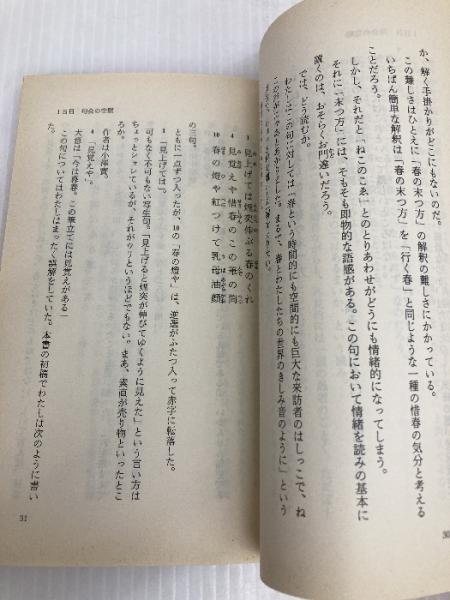 か、解く手掛かりがどこにもないのだ。
この難しさはひとえに「春の末つ方」の解釈の難しさにかかっている。
いちばん簡単な解釈は「春の末つ方」を「行く春」と同じような一種の惜春の気分と考える
ことだろう。
しかし、それだと「ねこのこゑ」とのとりあわせがどうにも情緒的になってしまう。
それに「末つ方」には、そもそも即物的な語感がある。この句において情緒を読みの基本に
置くのは、おそらくお門違いだろう。
では、どう読むか。
わたしはこの句に対しては「春という時間的にも空間的にも巨大な来訪者のはしっこで、ね
まるで、春とわたしたちの世界のきしみ音のように」という
30
1日目 句会の空間
3 見上げては煙突伸ぶる春のくれ
4 見覚えや惜春のこの筆の筒
10 春の燈や紅つけて乳母油顔
の三句。
ともに一点ずつ入ったが、10の「春の燈や」は、逆選がふたつ入って赤字に転落した。
3 「見上げては」。
可もなく不可もない写生句。「見上げると煙突が伸びてゆくように見えた」という言い方は
ちょっとシャレているが、それがウリというほどでもない。まあ、素直が売り物といったとこ
ろか。
作者は小澤實。
4 「見覚えや」。
大意は「今は暮春。この筆立てには見覚えがある」
この句についてはわたしはまったく誤解をしていた。本書の初稿でわたしは次のように書い
た。
31